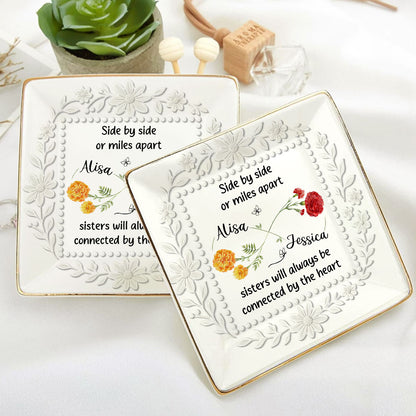 Side by side
or miles apart
Alisa
sisters will alwa
connected by the
Side by side
or miles apart
Alisa
Jessica
sisters will always be
connected by the heart